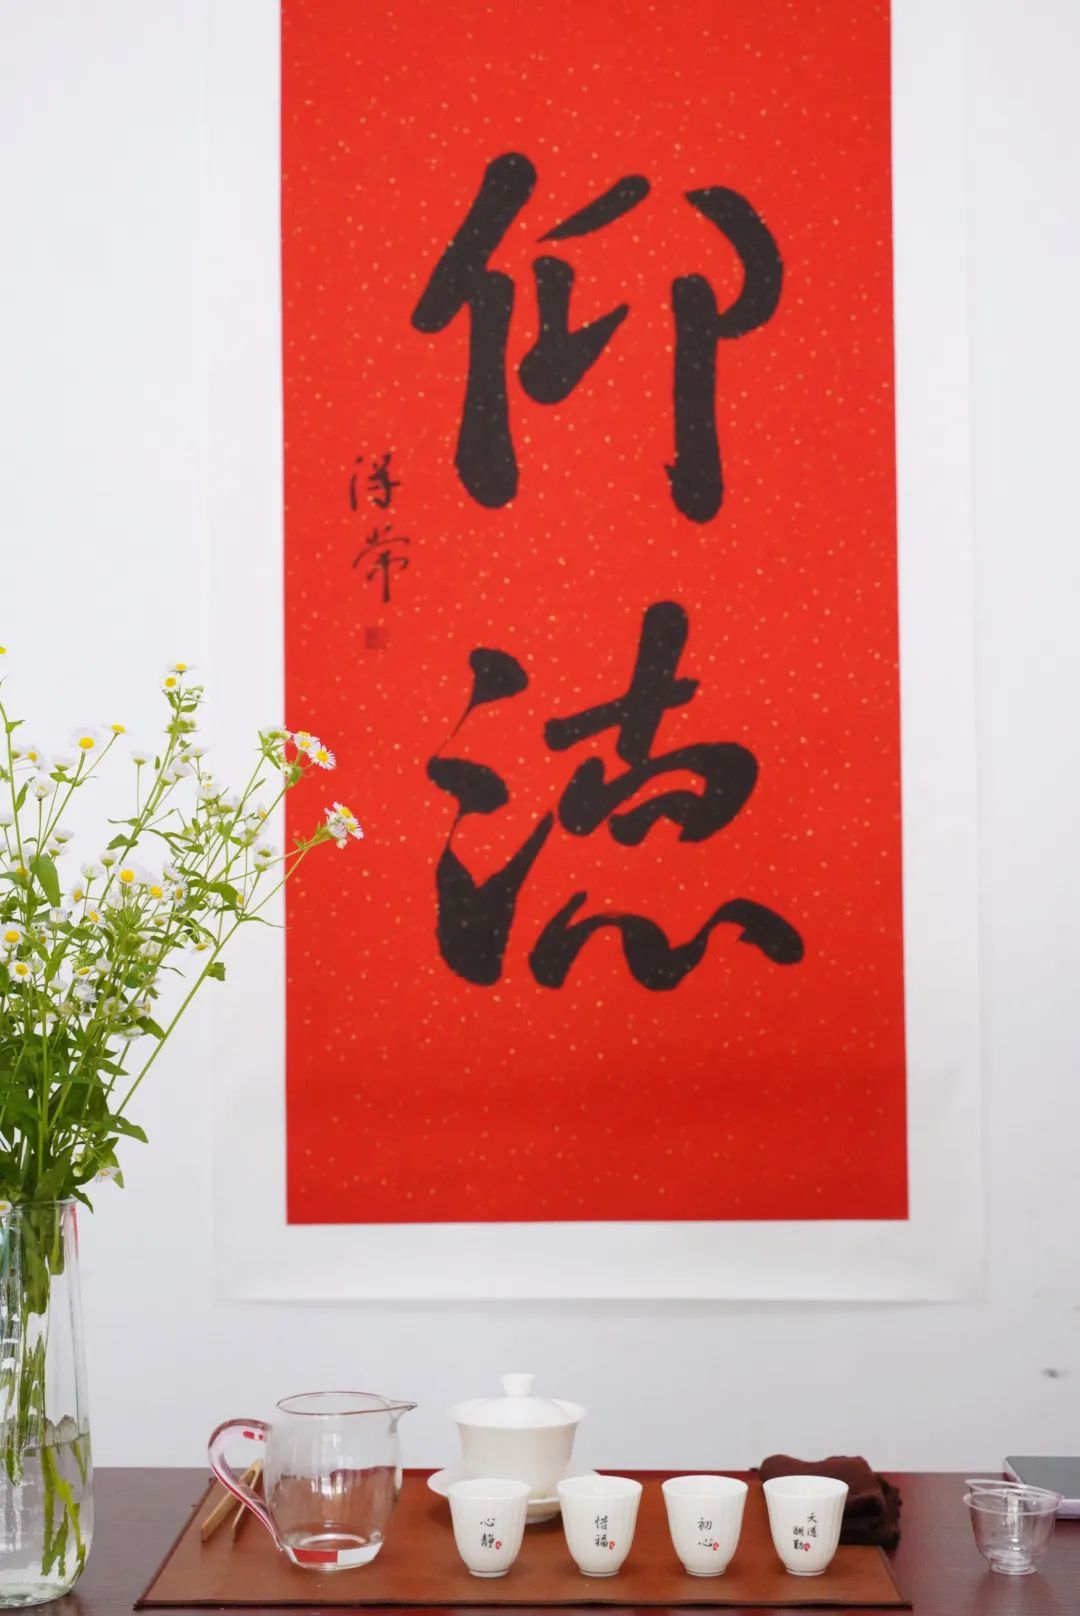 仰
德
得常
心静
惜福
初心
天道
酬勤